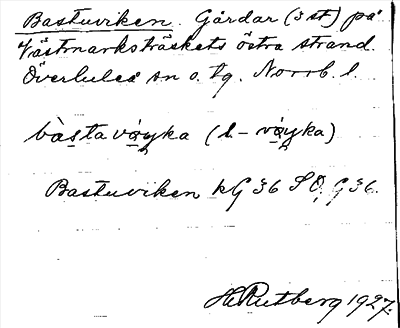 Bastuviken. Gårdar (3 st) på
Västmarksträskets östra strand.
Överluleå sn o. tg. Norrb. l.
bàstavɷyka (l-vɷyka)
Bastuviken kG 36 SO, G 36.
H Rutberg 1927.